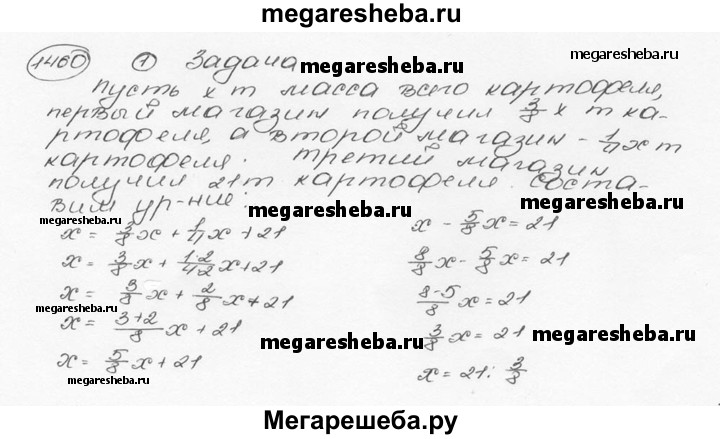 megaresheba.ru
1460 1 Задача megaresheba.ru
megaresheba.ru
пусть x т масса всего картофеля,
первый магазин получил 3/8 x т ка-
ртофеля, а второй магазин - 1/4 x т
картофеля. третий магазин
получил 21 т картофеля. Соста-
вим ур-ние:
megaresheba.ru
megaresheba.ru
x = 3/8 x + 1/4 x + 21
x = 3/8 x + 1·2/4·2 x + 21
x = 3/8 x + 2/8 x + 21
megaresheba.ru
x = 3+2/8 x + 21
x = 5/8 x + 21
megaresheba.ru
x - 5/8 x = 21
8/8 x - 5/8 x = 21
8-5/8 x = 21
3/8 x = 21
megaresheba.ru
x = 21 : 3/8
megaresheba.ru
Мегарешеба.ру